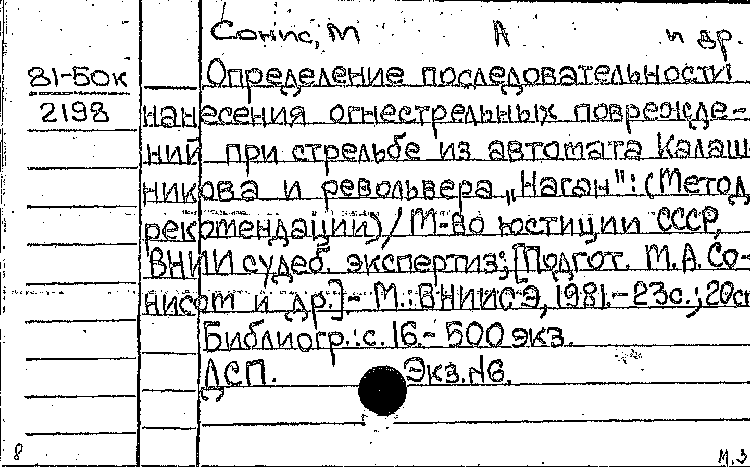 Сонис, М А и др.
81-50к Определение последовательности
2198 нанесения огнестрельных поврежде-
ний при стрельбе из автомата Калаш
никова и револьвера „Наган": (Метод.
рекомендации) / М-во юстиции СССР,
ВНИИ судеб. экспертиз; [Подгот. М.А. Со-
нисом и др.]- М.: ВНИИСЭ, 1981.- 23с.; 20см
Библиогр.: с. 16.- 500 экз.
ДСП. Экз. №6.
8 М.З